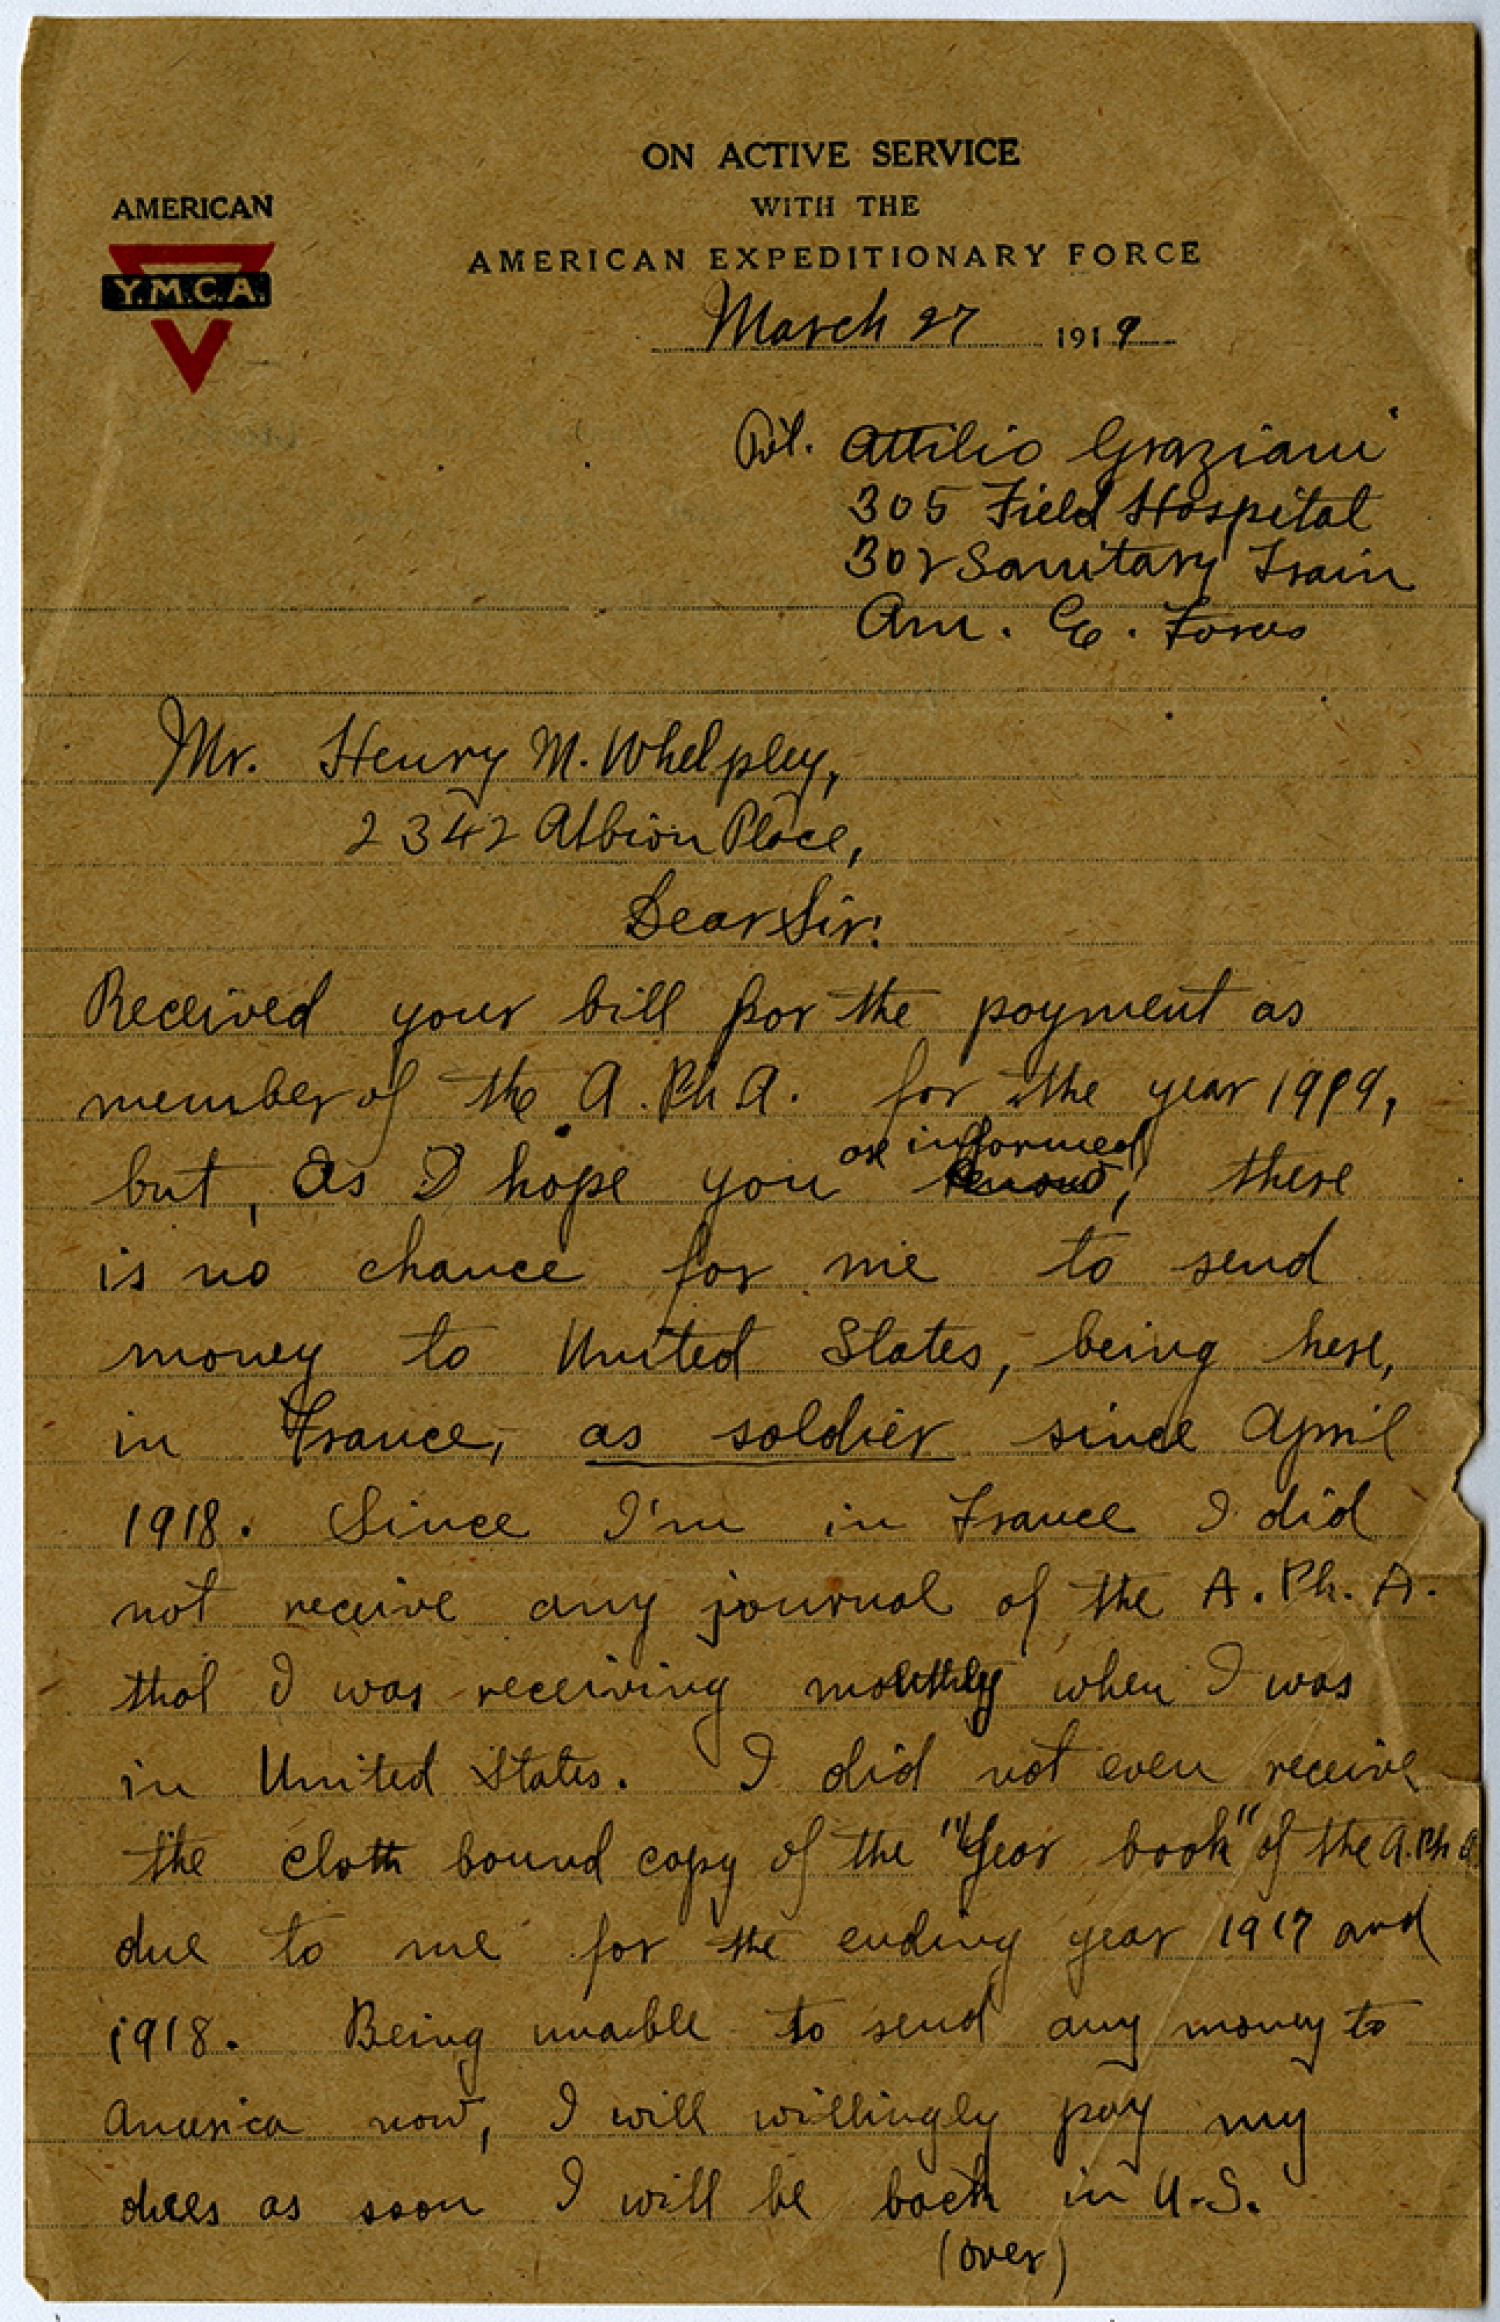 ON ACTIVE SERVICE
WITH THE
AMERICAN EXPEDITIONARY FORCE
AMERICAN
Y.M.C.A.
March 27 1919
Pvt. Attilio Graziani
305 Field Hospital
302 Sanitary Train
Am. E. Forces
Mr. Henry M. Whelpley,
2342 Albion Place,
Dear Sir:
Received your bill for the payment as
member of the A. Ph A. for the year 1919,
but, as I hope you are informed, there
is no chance for me to send
money to United States, being here,
in France, as soldier since April
1918. Since I'm in France I did
not receive any journal of the A. Ph. A.
that I was receiving monthly when I was
in United States. I did not even receive
the cloth bound copy of the "Year book" of the A. Ph A.
due to me for the ending year 1917 and
1918. Being unable to send any money to
America now, I will willingly pay my
dues as soon I will be back in U.S.
(over)